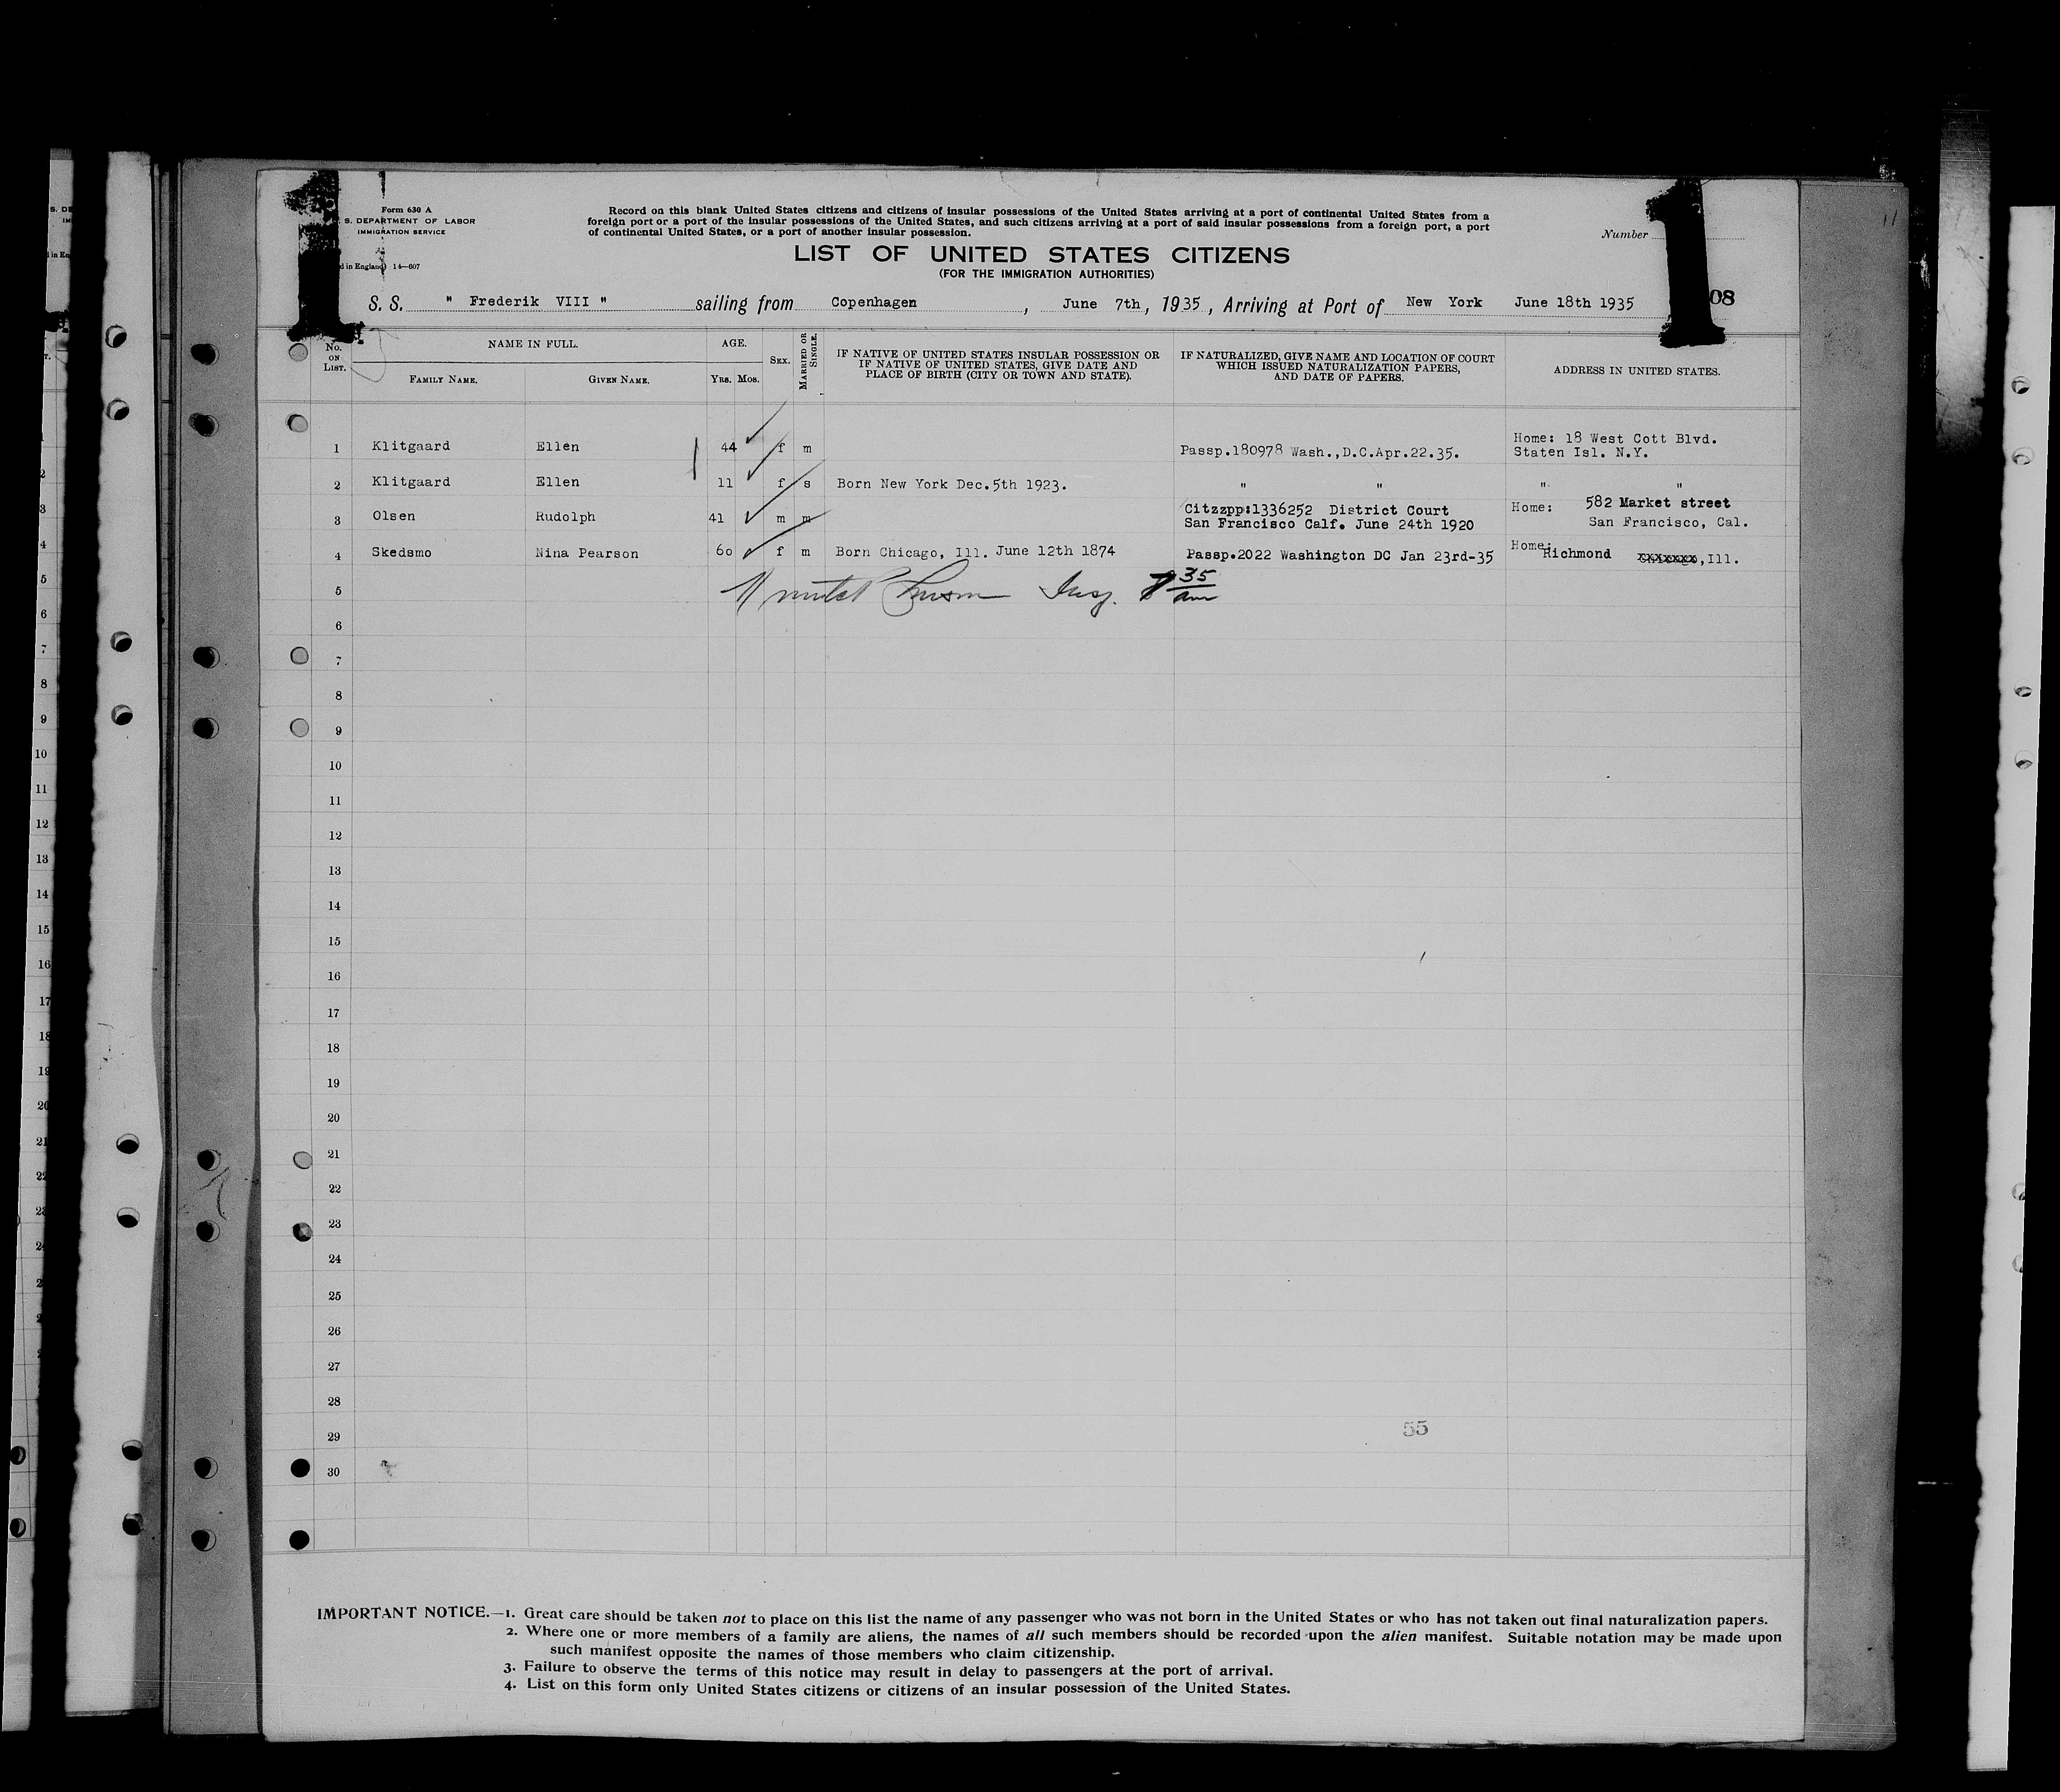 Form 630 A
S. DEPARTMENT OF LABOR
IMMIGRATION SERVICE
d in England) 14—607
Record on this blank United States citizens and citizens of insular possessions of the United States arriving at a port of continental United States from a
foreign port or a port of the insular possessions of the United States, and such citizens arriving at a port of said insular possessions from a foreign port, a port
of continental United States, or a port of another insular possession.
Number
LIST OF UNITED STATES CITIZENS
(FOR THE IMMIGRATION AUTHORITIES)
S. S. " Frederik VIII " sailing from Copenhagen, June 7th, 1935, Arriving at Port of New York June 18th 1935
08
1
1
No. ON LIST.
NAME IN FULL.
FAMILY NAME.
GIVEN NAME.
AGE.
YRS. MOS.
SEX.
MARRIED OR SINGLE.
IF NATIVE OF UNITED STATES INSULAR POSSESSION OR
IF NATIVE OF UNITED STATES, GIVE DATE AND
PLACE OF BIRTH (CITY OR TOWN AND STATE).
IF NATURALIZED, GIVE NAME AND LOCATION OF COURT
WHICH ISSUED NATURALIZATION PAPERS,
AND DATE OF PAPERS.
ADDRESS IN UNITED STATES.
1 Klitgaard Ellen 44 f m Passp.180978 Wash.,D.C.Apr.22.35. Home: 18 West Cott Blvd.
Staten Isl. N.Y.
2 Klitgaard Ellen 11 f s Born New York Dec.5th 1923. " " " "
3 Olsen Rudolph 41 m m Citzzpp:1336252 District Court Home: 582 Market street
San Francisco Calf. June 24th 1920 San Francisco, Cal.
4 Skedsmo Nina Pearson 60 f m Born Chicago, Ill. June 12th 1874 Passp.2022 Washington DC Jan 23rd-35 Home: Richmond ,Ill.
5 Insp. 35 am
6
7
8
9
10
11
12
13
14
15
16
17
18
19
20
21
22
23
24
25
26
27
28
29
30
55
IMPORTANT NOTICE.—1. Great care should be taken not to place on this list the name of any passenger who was not born in the United States or who has not taken out final naturalization papers.
2. Where one or more members of a family are aliens, the names of all such members should be recorded upon the alien manifest. Suitable notation may be made upon
such manifest opposite the names of those members who claim citizenship.
3. Failure to observe the terms of this notice may result in delay to passengers at the port of arrival.
4. List on this form only United States citizens or citizens of an insular possession of the United States.